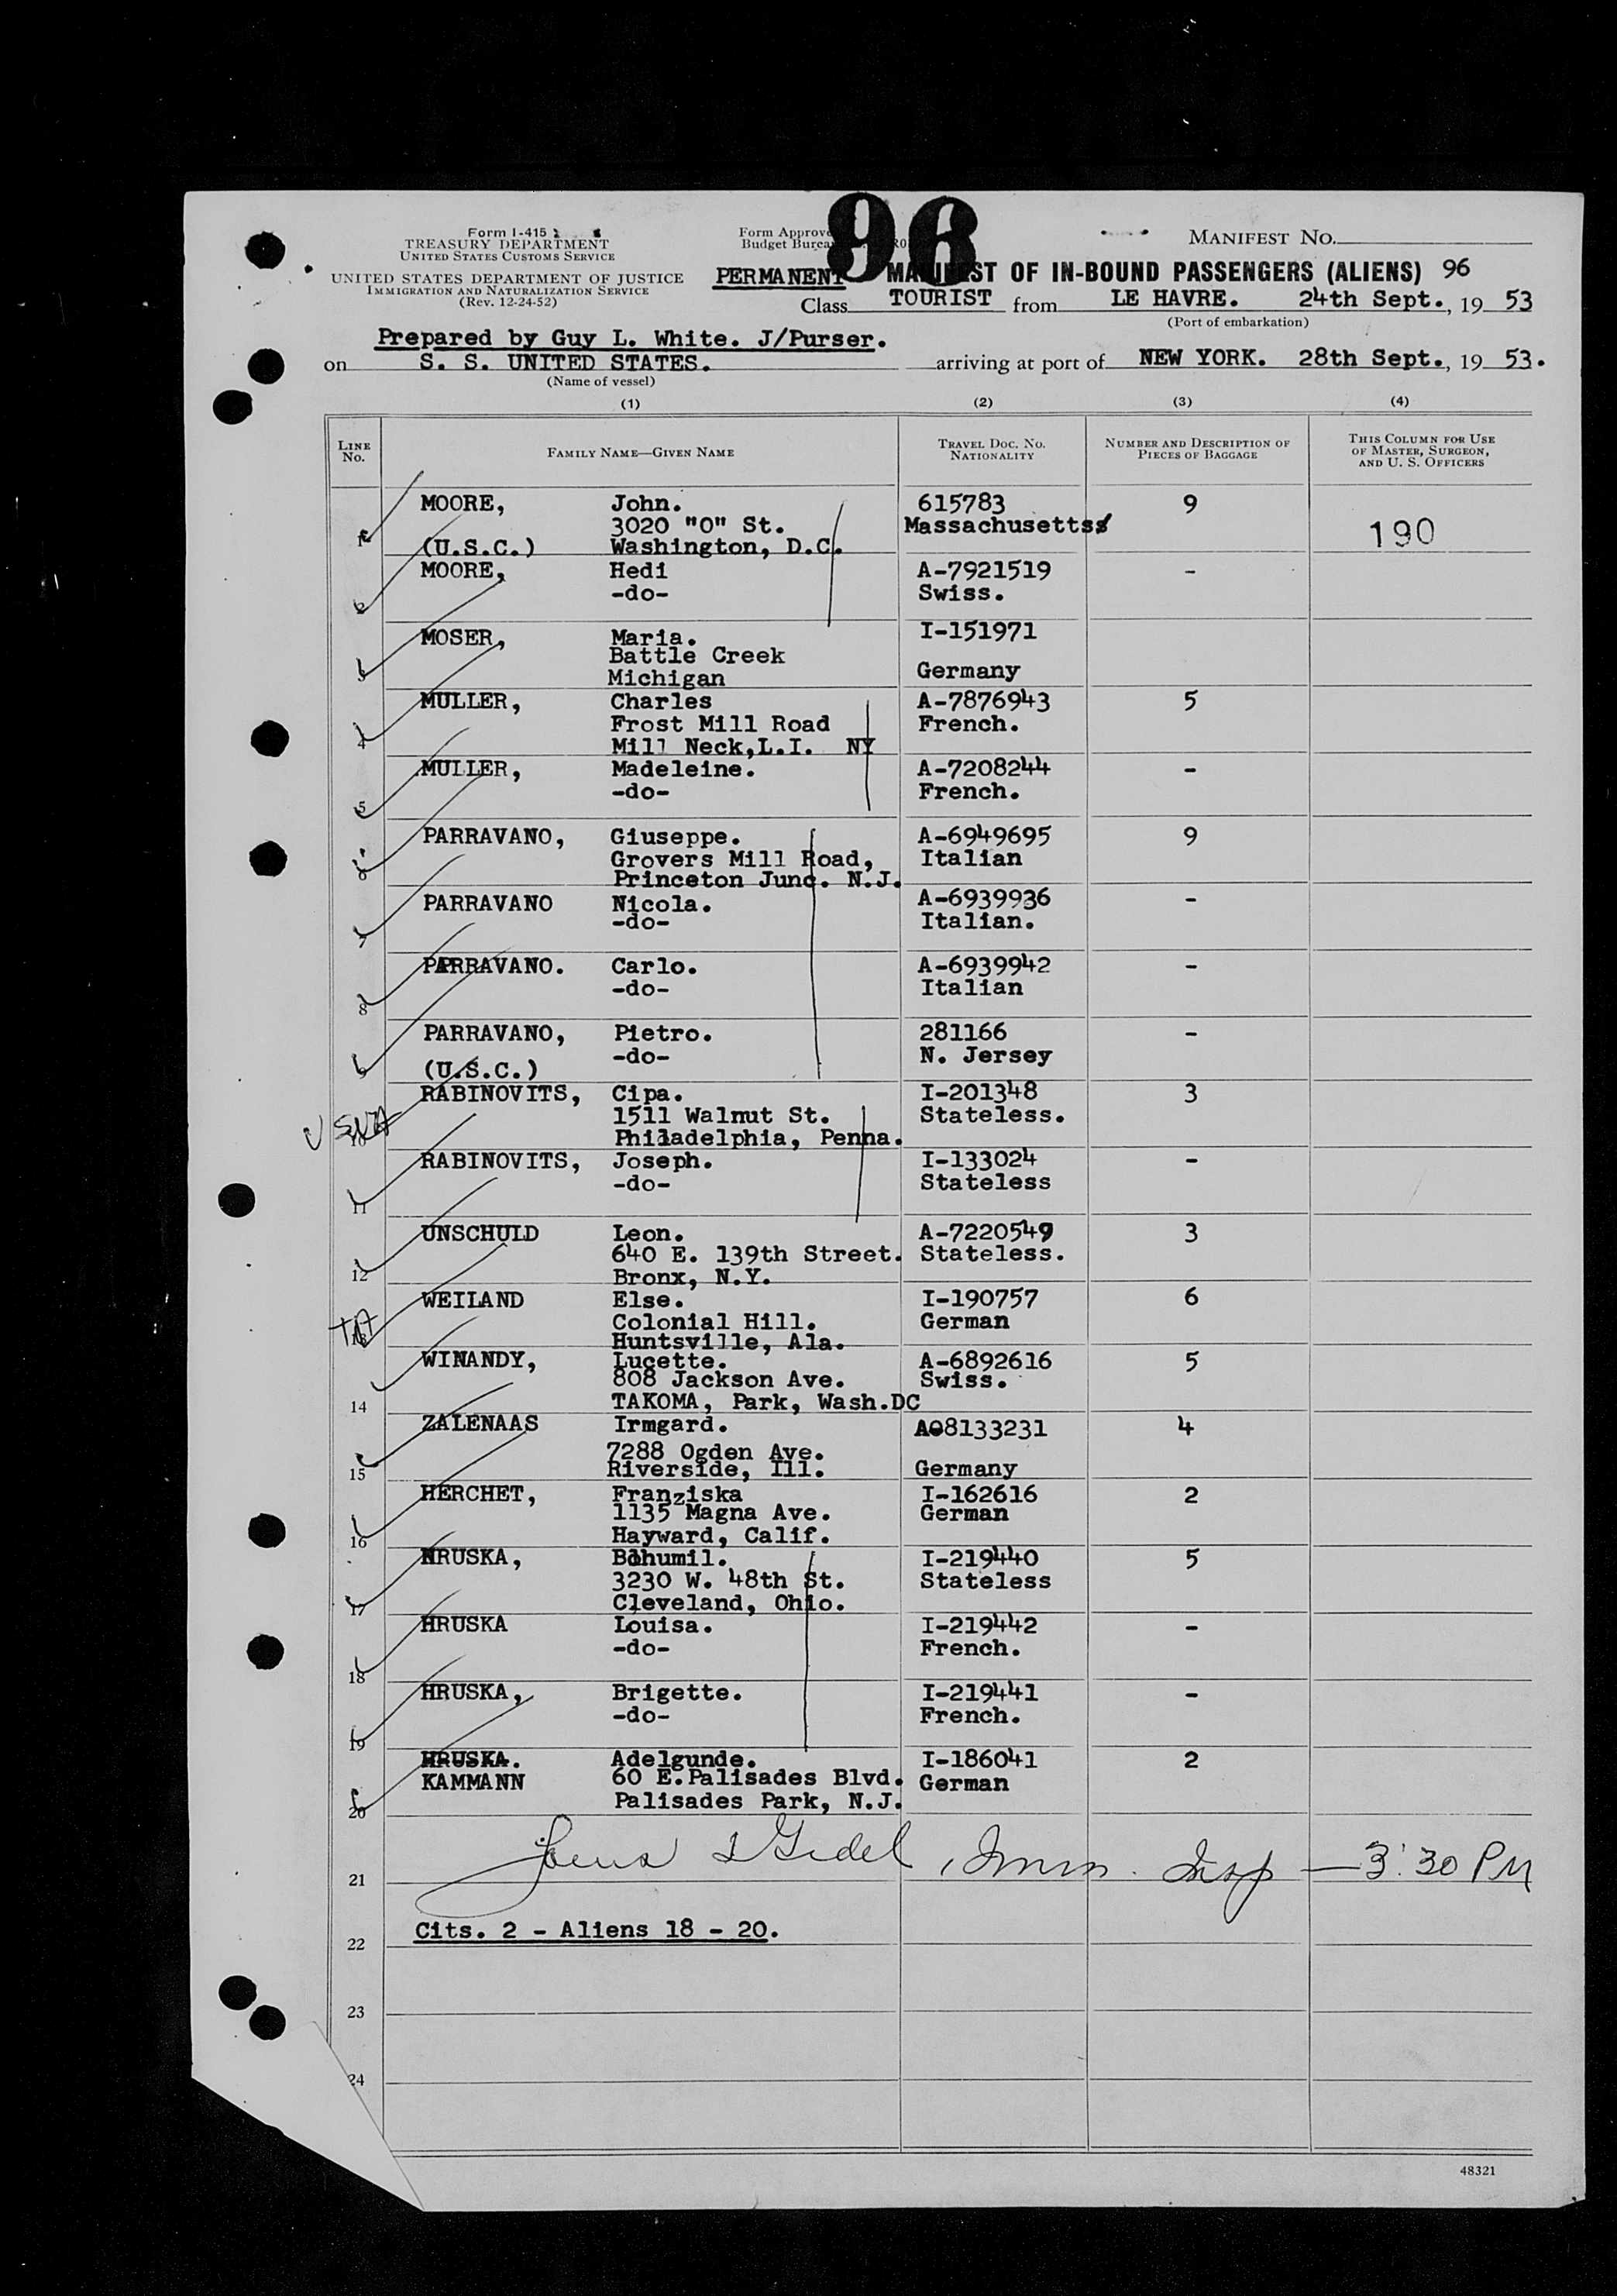 96
Form I-415
TREASURY DEPARTMENT
UNITED STATES CUSTOMS SERVICE
UNITED STATES DEPARTMENT OF JUSTICE
IMMIGRATION AND NATURALIZATION SERVICE
(Rev. 12-24-52)
Form Approve
Budget Burea
MANIFEST NO.
PERMANENT MANIFEST OF IN-BOUND PASSENGERS (ALIENS) 96
Class TOURIST from LE HAVRE. 24th Sept., 19 53
(Port of embarkation)
Prepared by Guy L. White. J/Purser.
on S. S. UNITED STATES. arriving at port of NEW YORK. 28th Sept., 19 53.
(Name of vessel)
(1) (2) (3) (4)
LINE No. FAMILY NAME—GIVEN NAME TRAVEL DOC. NO. NATIONALITY NUMBER AND DESCRIPTION OF PIECES OF BAGGAGE THIS COLUMN FOR USE OF MASTER, SURGEON, AND U. S. OFFICERS
MOORE, John. 615783 9
3020 "O" St. Massachusetts 190
1 (U.S.C.) Washington, D.C.
MOORE, Hedi A-7921519 -
2 -do- Swiss.
MOSER, Maria. I-151971
Battle Creek
3 Michigan Germany
MULLER, Charles A-7876943 5
Frost Mill Road French.
4 Mill Neck,L.I. NY
MULLER, Madeleine. A-7208244 -
5 -do- French.
PARRAVANO, Giuseppe. A-6949695 9
Grovers Mill Road, Italian
6 Princeton Junc. N.J.
PARRAVANO Nicola. A-6939936 -
7 -do- Italian.
PARRAVANO. Carlo. A-6939942 -
8 -do- Italian
PARRAVANO, Pietro. 281166 -
-do- N. Jersey
9 (U.S.C.)
RABINOVITS, Cipa. I-201348 3
1511 Walnut St. Stateless.
10 Philadelphia, Penna.
RABINOVITS, Joseph. I-133024 -
11 -do- Stateless
UNSCHULD Leon. A-7220549 3
640 E. 139th Street. Stateless.
12 Bronx, N.Y.
WEILAND Else. I-190757 6
Colonial Hill. German
13 Huntsville, Ala.
WINANDY, Lucette. A-6892616 5
808 Jackson Ave. Swiss.
14 TAKOMA, Park, Wash.DC
ZALENAAS Irmgard. A08133231 4
7288 Ogden Ave.
15 Riverside, Ill. Germany
HERCHET, Franziska I-162616 2
1135 Magna Ave. German
16 Hayward, Calif.
HRUSKA, Bohumil. I-219440 5
3230 W. 48th St. Stateless
17 Cleveland, Ohio.
HRUSKA Louisa. I-219442 -
18 -do- French.
HRUSKA, Brigette. I-219441 -
19 -do- French.
HRUSKA. Adelgunde. I-186041 2
KAMMANN 60 E.Palisades Blvd. German
20 Palisades Park, N.J.
21 Imm. Insp — 3:30 PM
22 Cits. 2 - Aliens 18 - 20.
23
24
48321